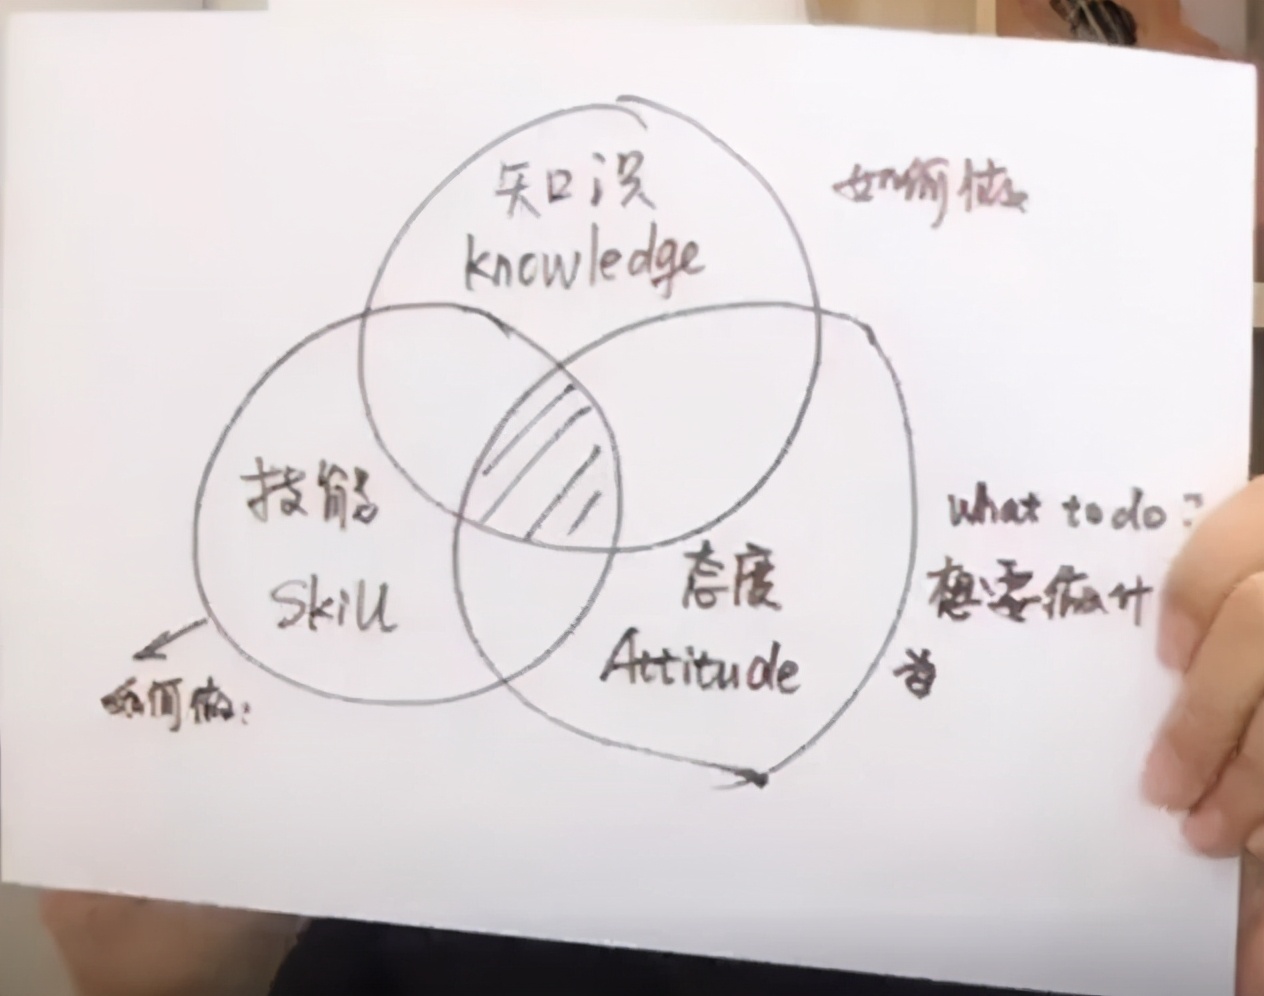 知识
knowledge
如何做
技能
Skill
如何做:
态度
Attitude
what to do?
想要做什
着